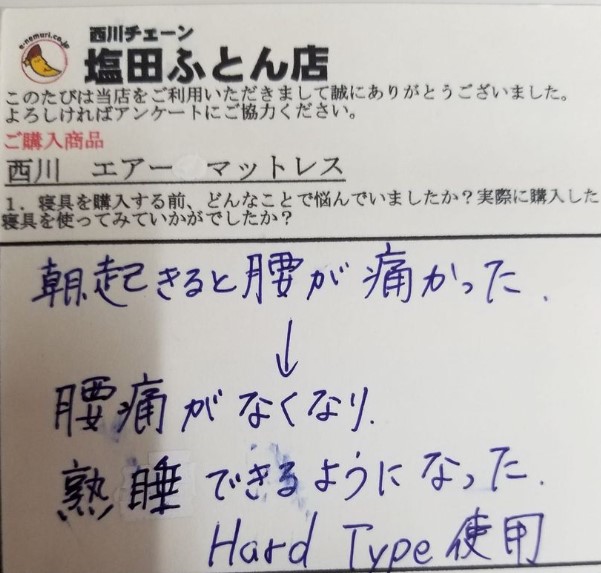 e-nemuri.co.jp
西川チェーン
塩田ふとん店
このたびは当店をご利用いただきまして誠にありがとうございました。
よろしければアンケートにご協力ください。
ご購入商品
西川 エアー マットレス
1. 寝具を購入する前、どんなことで悩んでいましたか?実際に購入した
寝具を使ってみていかがでしたか?
朝起きると腰が痛かった.
↓
腰痛がなくなり.
熟睡できるようになった.
Hard Type 使用